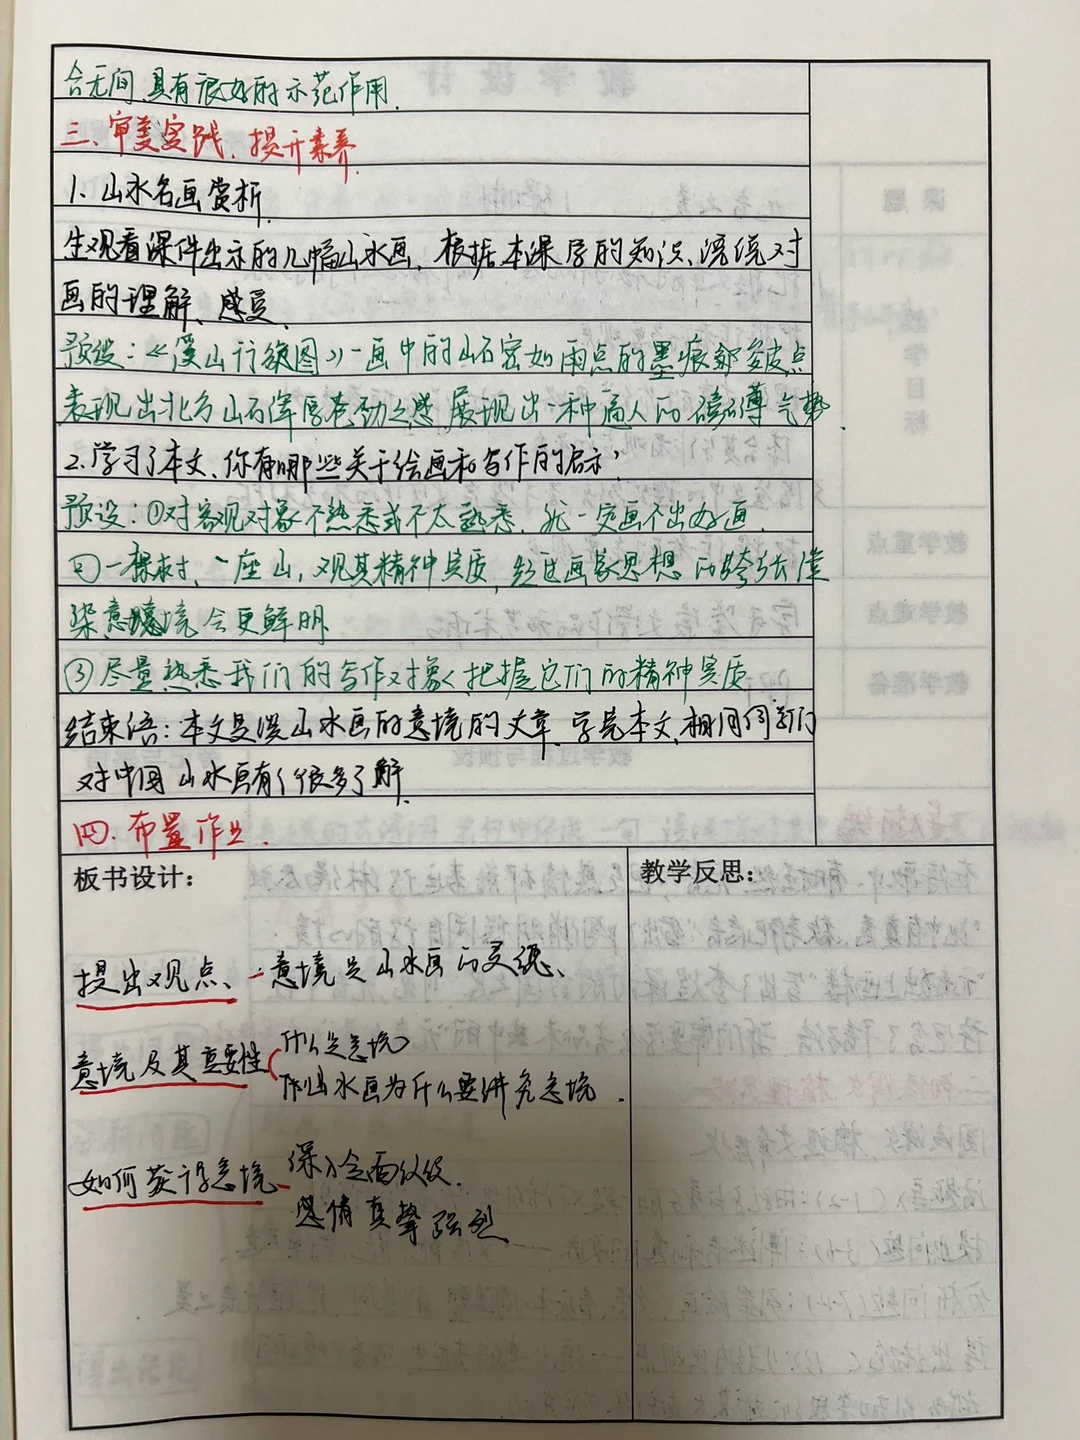 合无间,具有很好的示范作用.
三、审美实践、提升素养.
1. 山水名画赏析.
生观看课件出示的几幅山水画,根据本课学的知识、谈谈对
画的理解、感受.
预设:《溪山行旅图》一画中的山石密如雨点的墨痕
表现出北方山石浑厚苍劲之感,展现出一种逼人的磅礴气势.
2. 学习了本文、你有哪些关于绘画和写作的启示?
预设:①对客观对象不熟悉或不太熟悉,就一定画不出好画.
②一棵树、一座山,观其精神实质,经过画家思想的夸张渲
染意境会更鲜明.
③尽量熟悉我们的写作对象,把握它们的精神实质
结束语:本文是谈山水画的意境的文章,学完本文,相同们
对中国山水画有了很多了解.
四、布置作业.
板书设计:
教学反思:
提出观点、—意境是山水画的灵魂、
意境及其重要性
什么是意境
作山水画为什么要讲究意境.
如何获得意境
深入全面
感情真挚强烈.